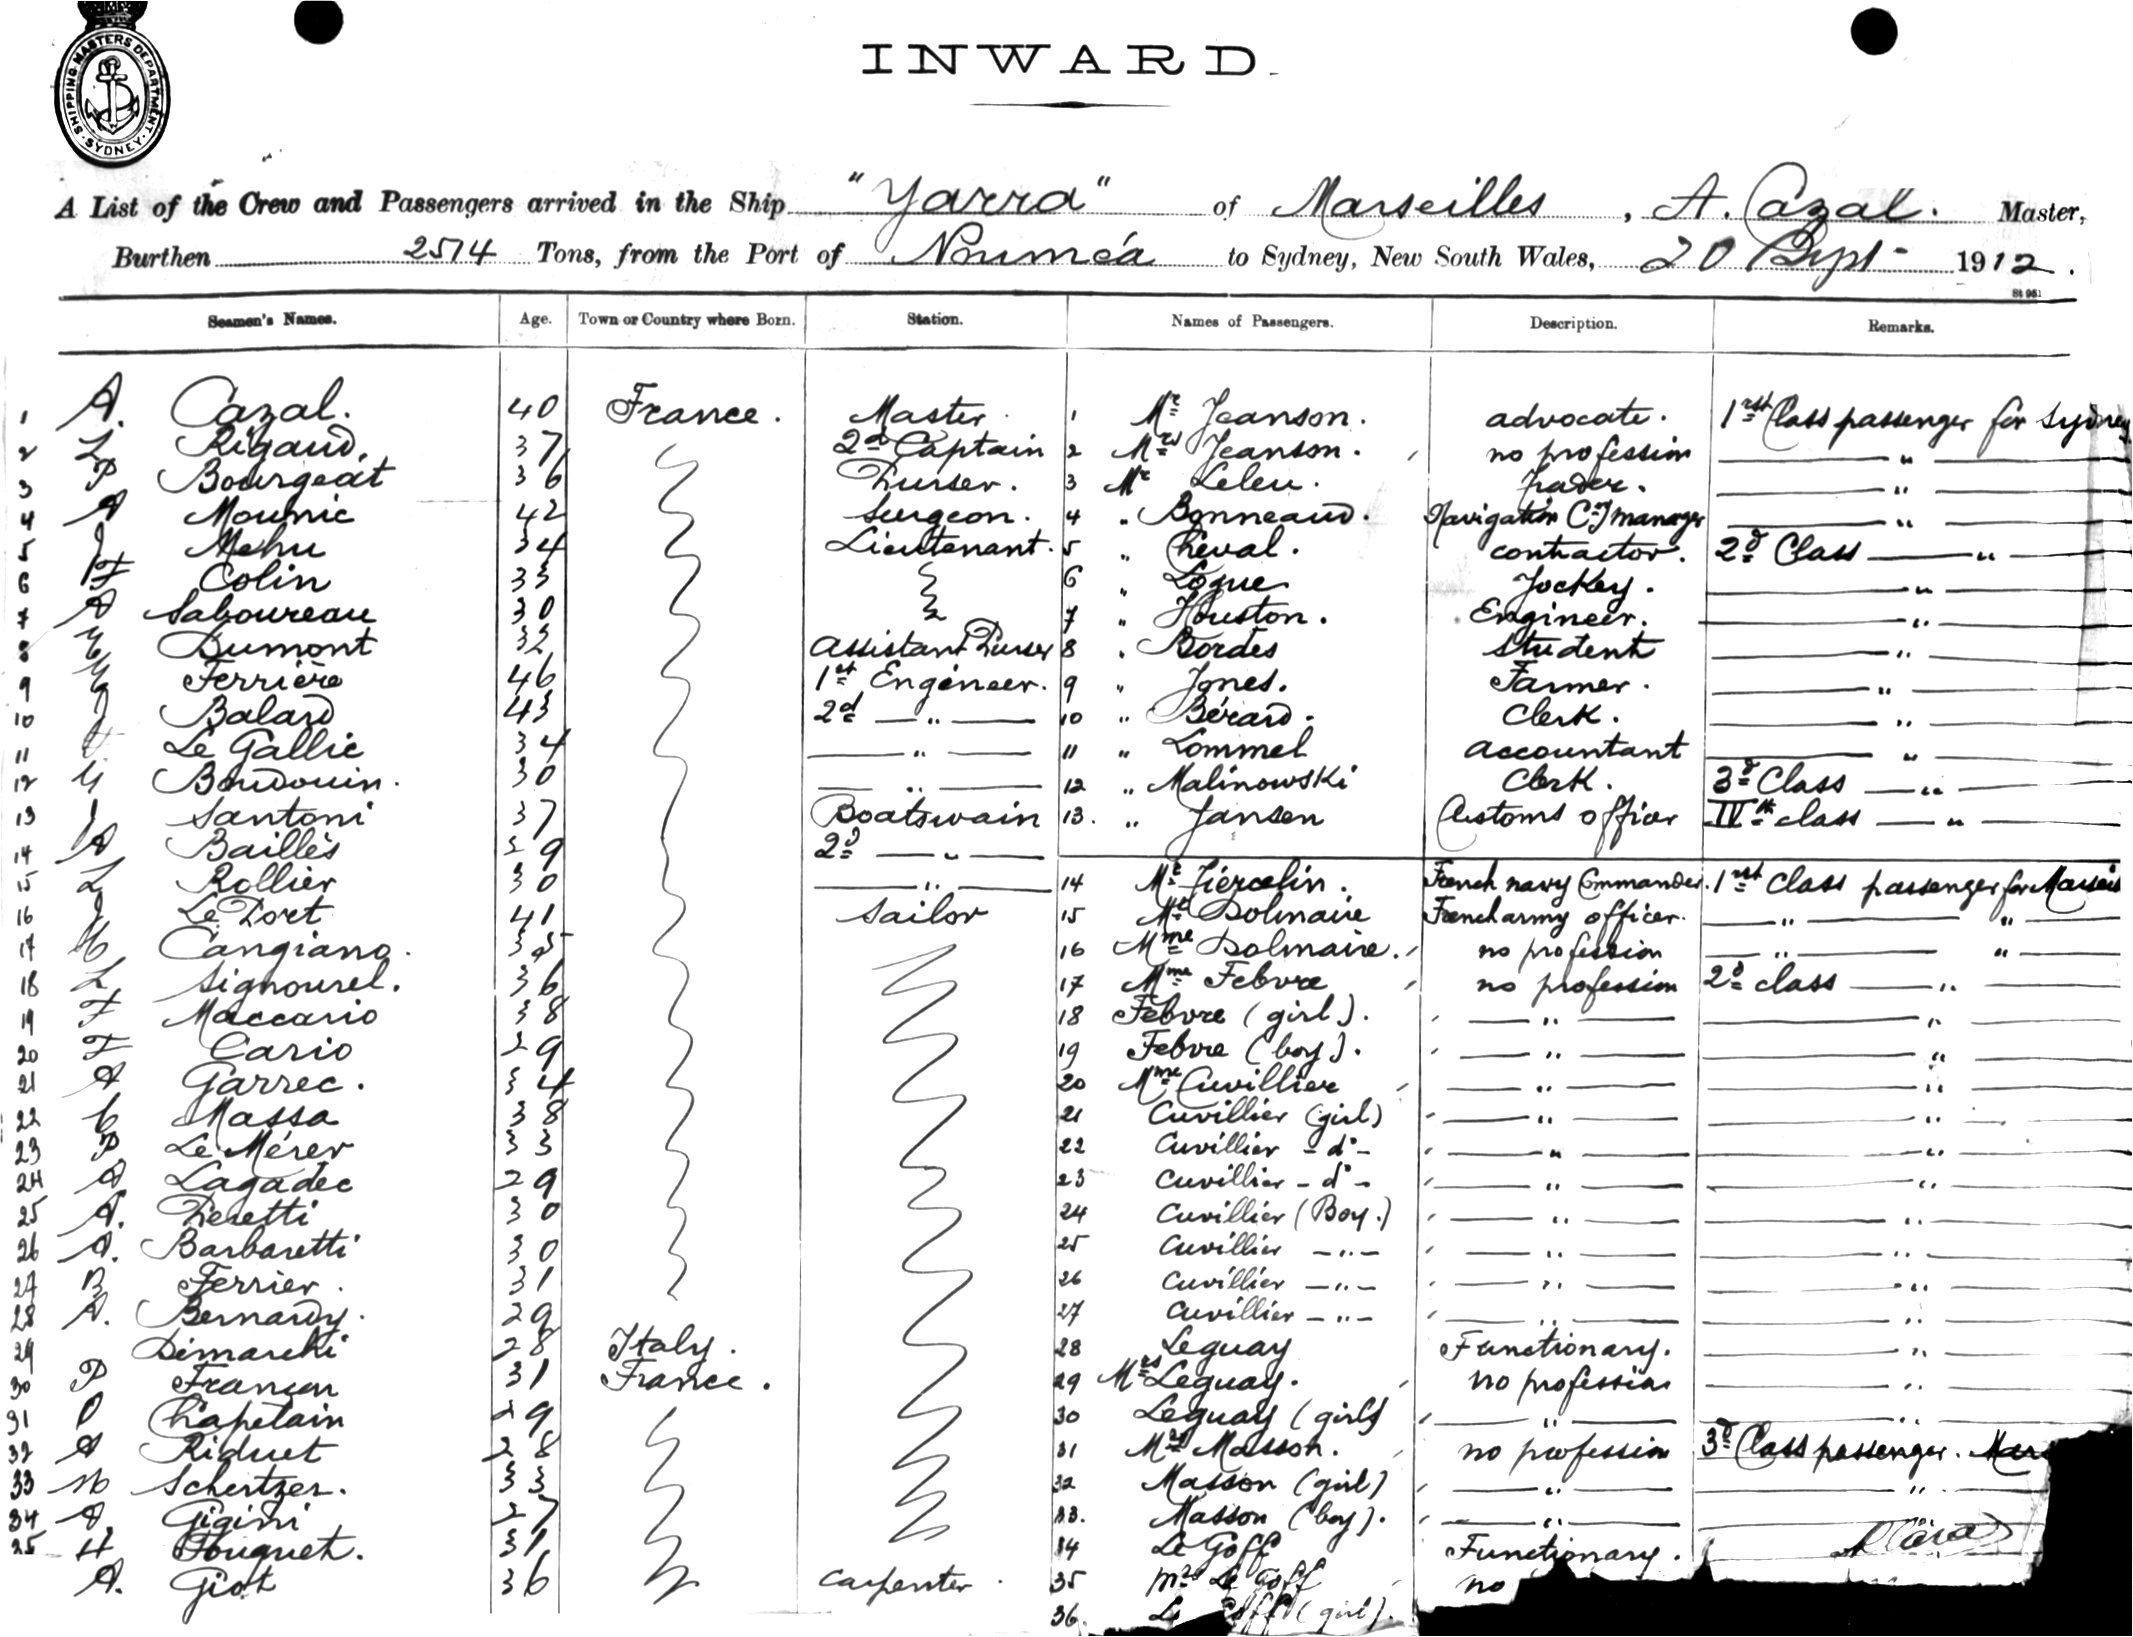 SHIPPING MASTERS DEPARTMENT. SYDNEY
INWARD.
A List of the Crew and Passengers arrived in the Ship "Yarra" of Marseilles, A. Cazal. Master,
Burthen 2514 Tons, from the Port of Nouméa to Sydney, New South Wales, 20 Sept- 1912.
St 951
Seamen's Names. Age. Town or Country where Born. Station. Names of Passengers. Description. Remarks.
1 A. Cazal. 40 France. Master 1 Mr Jeanson. advocate. 1rst Class passenger for Sydney
2 L Rigaud. 37 2d Captain 2 Mrs Jeanson. no profession "
3 P Bourgeat 36 Purser. 3 Mr Leleu. Trader. "
4 A Mounic 42 Surgeon. 4 " Bonneaud. Navigation Cy manager "
5 J Mehu 34 Lieutenant. 5 " Cheval. contractor. 2d Class "
6 F Colin 33 6 " Logue Jockey. "
7 A Saboureau 30 7 " Houston. Engineer. "
8 Dumont 32 assistant Purser 8 " Bordes Student "
9 Ferrière 46 1st Engineer. 9 " Jones. Farmer. "
10 J Balard 43 2d " 10 " Bérard. Clerk. "
11 Le Gallic 34 " 11 " Lommel accountant "
12 Baudouin. 30 " 12 " Malinowski Clerk. 3d Class "
13 J Santoni 37 Boatswain 13. " Jansen Customs officer IVth class "
14 A Baillès 29 2d "
15 L Rollier 30 " 14 Mr Tiercelin. French navy Commander. 1rst Class passenger for Marseis
16 J Le Port 41 Sailor 15 Mr Dolmaire French army officer. " "
17 Cangiano. 35 16 Mme Dolmaire. no profession " "
18 L Signourel. 36 17 Mme Febvre no profession 2d class "
19 F Maccario 38 18 Febvre (girl). " "
20 F Cario 29 19 Febvre (boy). " "
21 A Garrec. 34 20 Mme Cuvillier " "
22 C Massa 38 21 Cuvillier (girl) " "
23 P Le Mérer 33 22 Cuvillier - do - " "
24 A Lagadec 29 23 Cuvillier - do - " "
25 A. Pieretti 30 24 Cuvillier (Boy.) " "
26 A. Barbaretti 30 25 Cuvillier - " - " "
27 B Ferrier. 31 26 Cuvillier - " - " "
28 A. Bernardy. 29 27 Cuvillier - " - " "
29 Dimarchi 28 Italy. 28 Leguay Functionary. "
30 P 31 France. 29 Mrs Leguay. no profession "
31 Chapelain 29 30 Leguay (girl) " "
32 A Riduet 28 31 Mrs Masson. no profession 3d Class passenger. Mars
33 M Schertzer. 33 32 Masson (girl) " "
34 A Gigini 27 33. Masson (boy). "
35 H Fouquet. 31 34 Le Goff Functionary.
A. Giot 36 Carpenter 35 Mrs Le Goff no
36. Le Goff (girl).